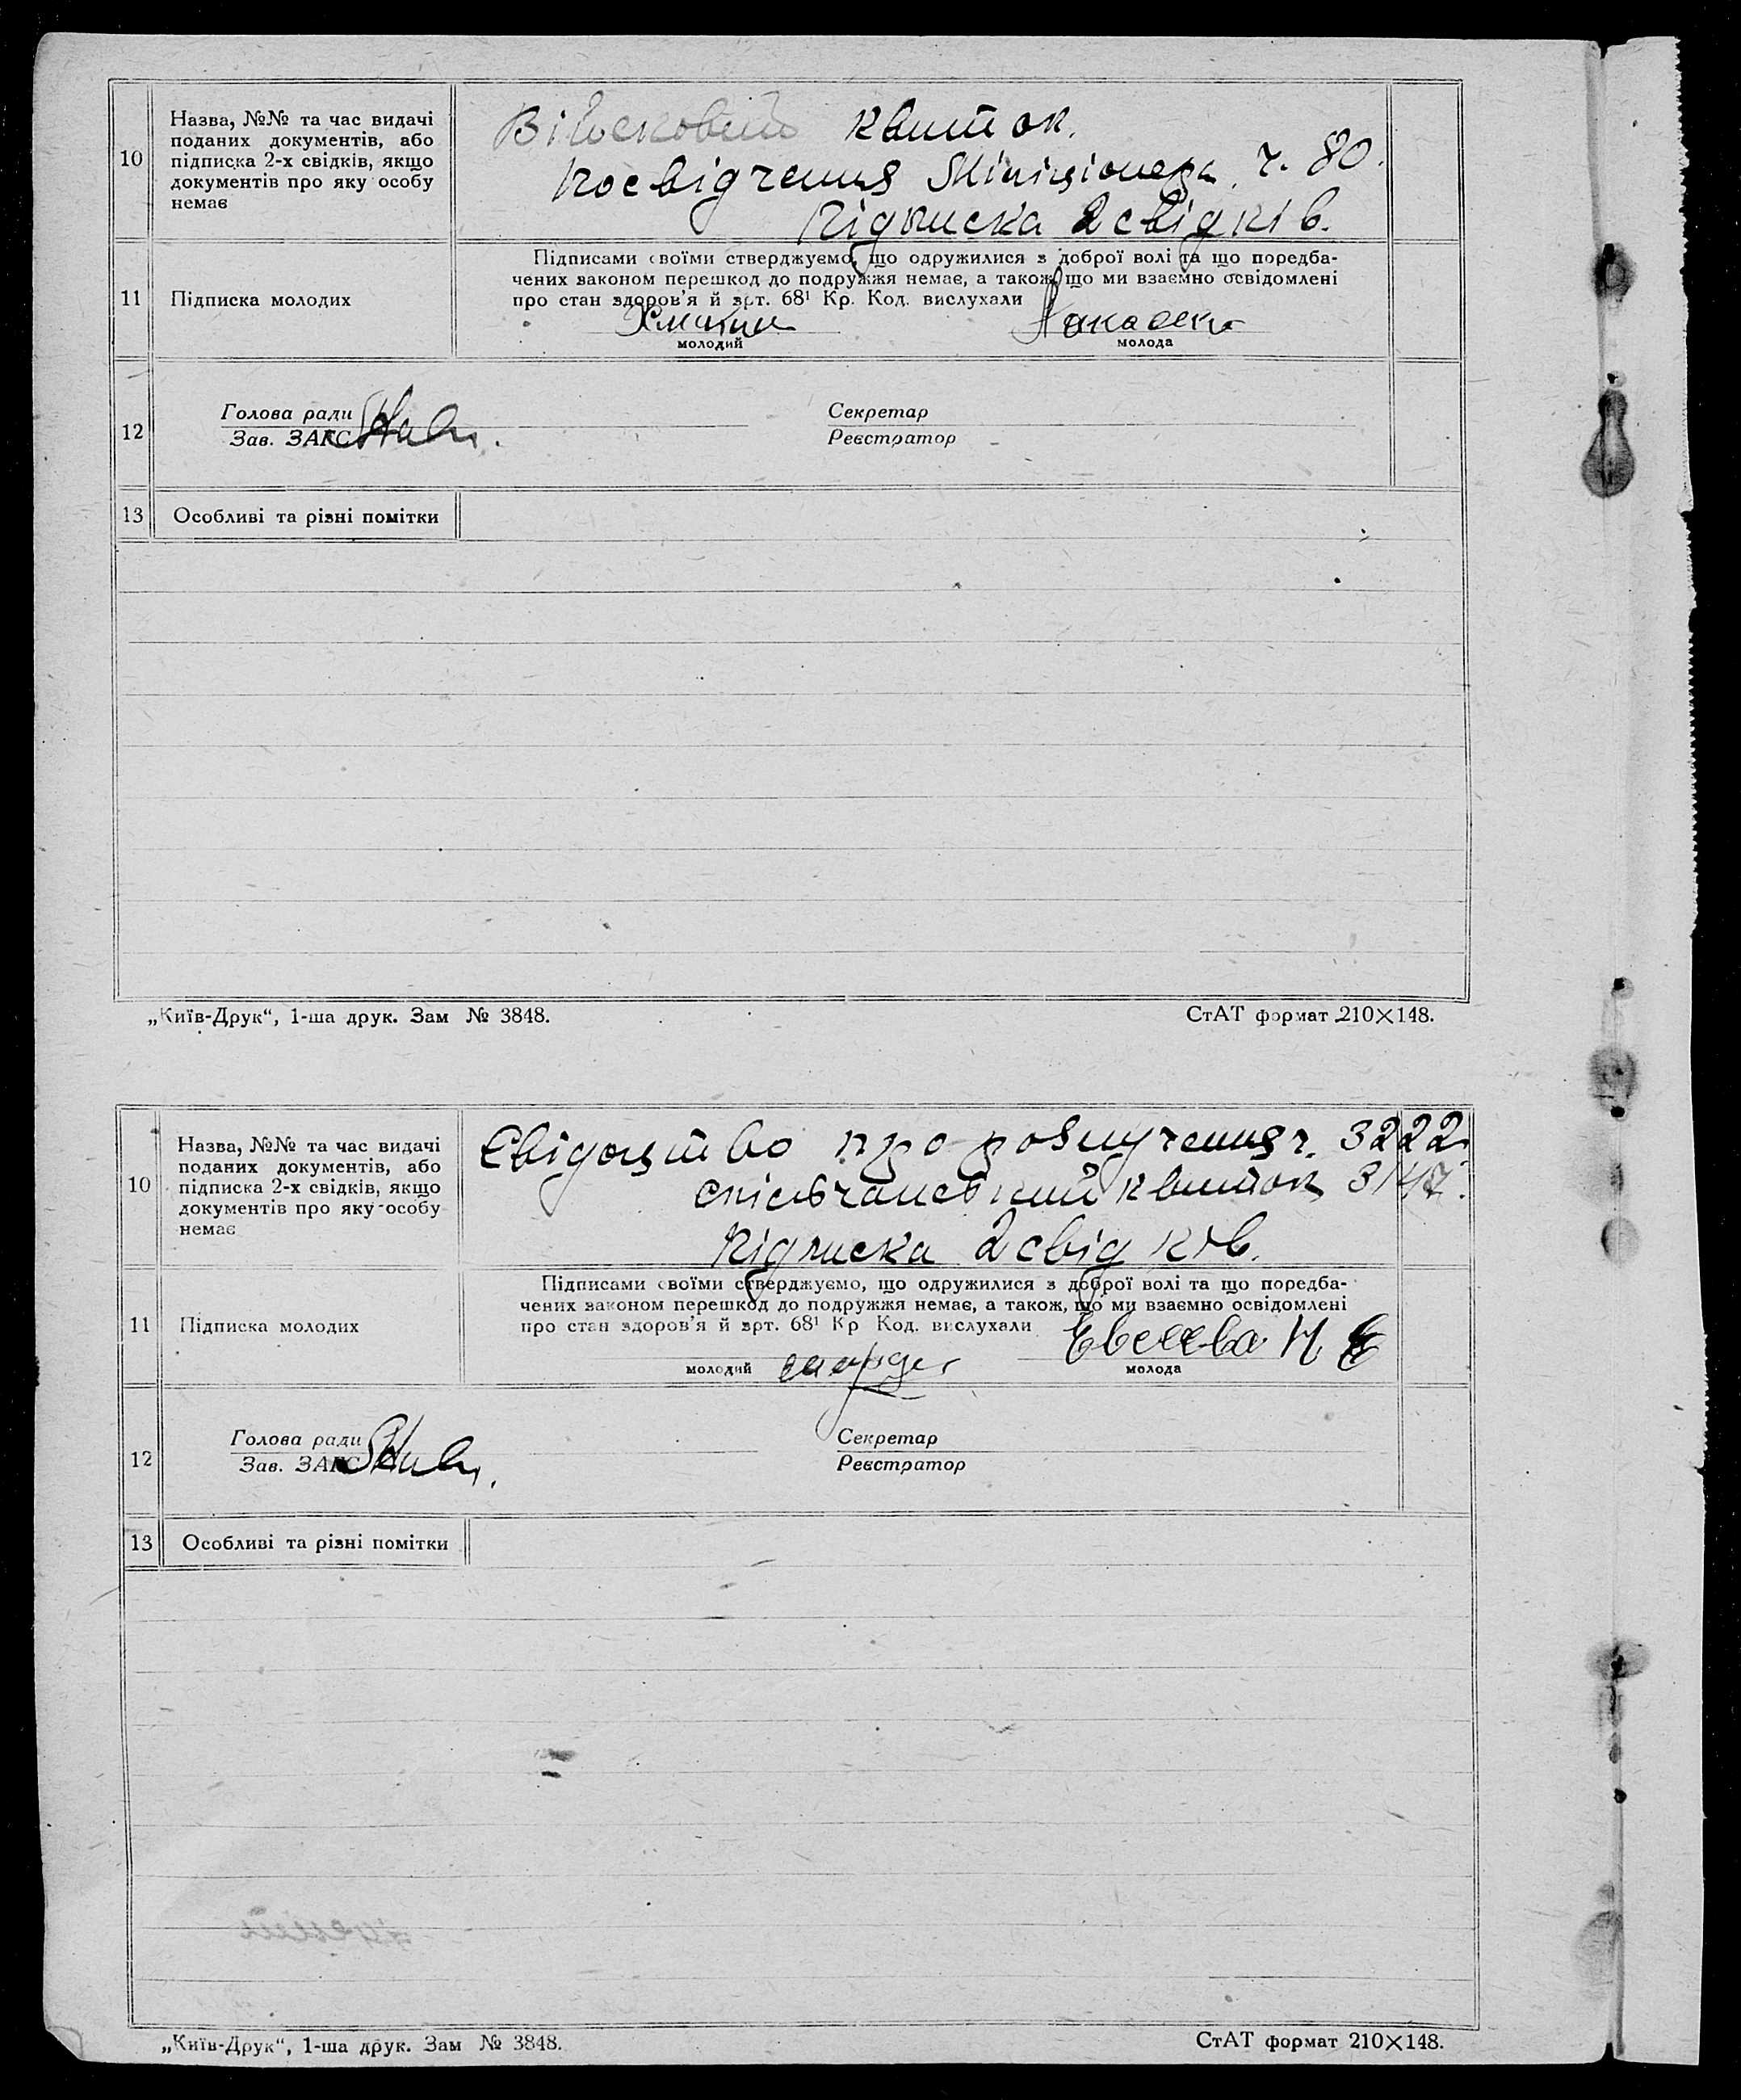 10
Назва, №№ та час видачі
поданих документів, або
підписка 2-х свідків, якщо
документів про яку особу
немає
Війсковий квиток.
Посвідчення Міліціонера ч. 80.
Підписка 2 свідків.
11
Підписка молодих
Підписами своїми стверджуємо, що одружилися з доброї волі та що поредба-
чених законом перешкод до подружжя немає, а також, що ми взаємно освідомлені
про стан здоров'я й арт. 68¹ Кр. Код. вислухали
молодий
молода
12
Голова ради
Зав. ЗАГС
Секретар
Реєстратор
13
Особливі та різні помітки
„Київ-Друк“, 1-ша друк. Зам № 3848.
СтАТ формат 210×148.
10
Назва, №№ та час видачі
поданих документів, або
підписка 2-х свідків, якщо
документів про яку особу
немає
Свідоцтво про розлучення ч. 3222
квиток
Підписка 2 свідків.
11
Підписка молодих
Підписами своїми стверджуємо, що одружилися з доброї волі та що поредба-
чених законом перешкод до подружжя немає, а також, що ми взаємно освідомлені
про стан здоров'я й арт. 68¹ Кр Код. вислухали
молодий
молода
12
Голова ради
Зав. ЗАГС
Секретар
Реєстратор
13
Особливі та різні помітки
„Київ-Друк“, 1-ша друк. Зам № 3848.
СтАТ формат 210×148.